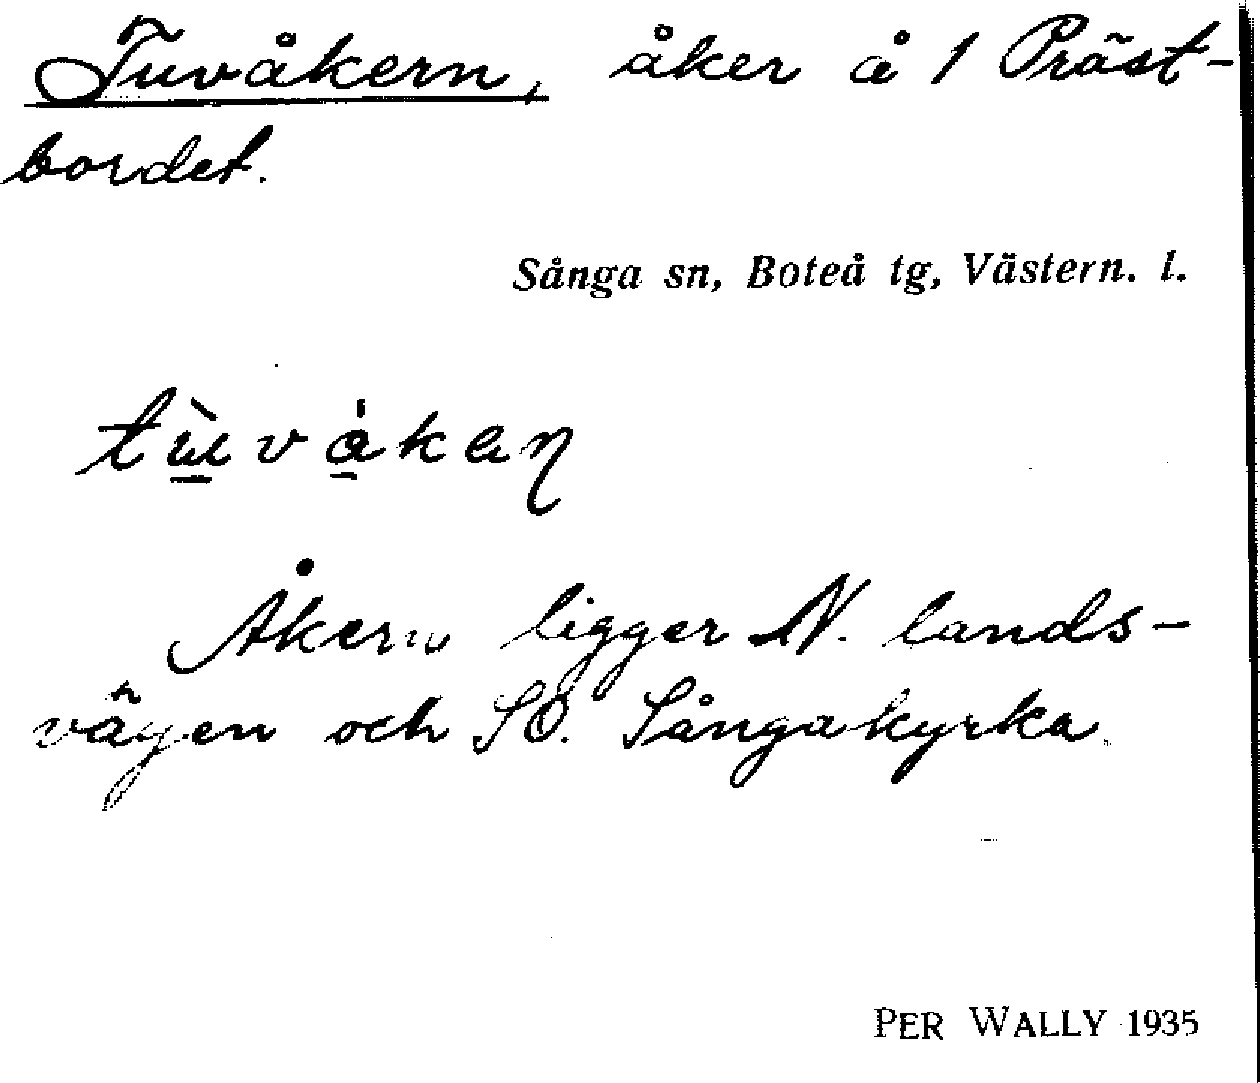 Tuvåkern, åker å 1 Präst-
bordet.
Sånga sn, Boteå tg, Västern. l.
Åkern ligger N. lands-
vägen och SÖ. Sånga kyrka.
PER WALLY 1935